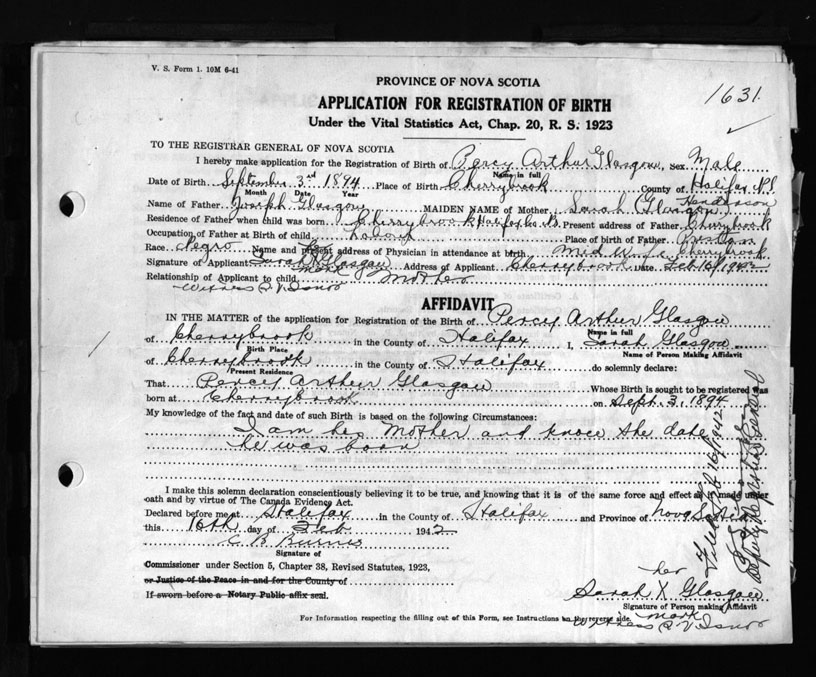 V. S. Form 1. 10M 6-41
1631.
PROVINCE OF NOVA SCOTIA
APPLICATION FOR REGISTRATION OF BIRTH
Under the Vital Statistics Act, Chap. 20, R. S. 1923
TO THE REGISTRAR GENERAL OF NOVA SCOTIA
I hereby make application for the Registration of Birth of Percy Arthur Glasgow, Sex Male
Name in full
Date of Birth September 3rd 1894 Place of Birth Cherrybrook County of Halifax N.S.
Month Date Year
Henderson
Name of Father Joseph Glasgow MAIDEN NAME of Mother Sarah (Glasgow)
Residence of Father when child was born Cherrybrook Halifax Co. Present address of Father Cherrybrook
Occupation of Father at Birth of child labour Place of birth of Father Preston
Race Negro Name and present address of Physician in attendance at birth Mid Wife Cherrybrook
Signature of Applicant Sarah X Glasgow Address of Applicant Cherrybrook Date Feb 16/1942
her
mark
Relationship of Applicant to child Mother
Witness
AFFIDAVIT
IN THE MATTER of the application for Registration of the Birth of Percy Arthur Glasgow
Name in full
of Cherrybrook in the County of Halifax I, Sarah Glasgow
Birth Place
Name of Person Making Affidavit
of Cherrybrook in the County of Halifax do solemnly declare:
Present Residence
That Percy Arthur Glasgow Whose Birth is sought to be registered was
born at Cherrybrook on Sept. 3, 1894
My knowledge of the fact and date of such Birth is based on the following Circumstances:
I am his Mother and know the date
he was born
I make this solemn declaration conscientiously believing it to be true, and knowing that it is of the same force and effect as if made under
oath and by virtue of The Canada Evidence Act.
Declared before me at Halifax in the County of Halifax and Province of Nova Scotia
this 16th day of Feb 1942
C B Burns
Signature of
Commissioner under Section 5, Chapter 38, Revised Statutes, 1923,
or Justice of the Peace in and for the County of
If sworn before a Notary Public affix seal.
her
Sarah X Glasgow
Signature of Person making Affidavit
mark
Witness
For Information respecting the filling out of this Form, see Instructions on the reverse side.
Filed Feb 16/1942
Deputy Registrar General